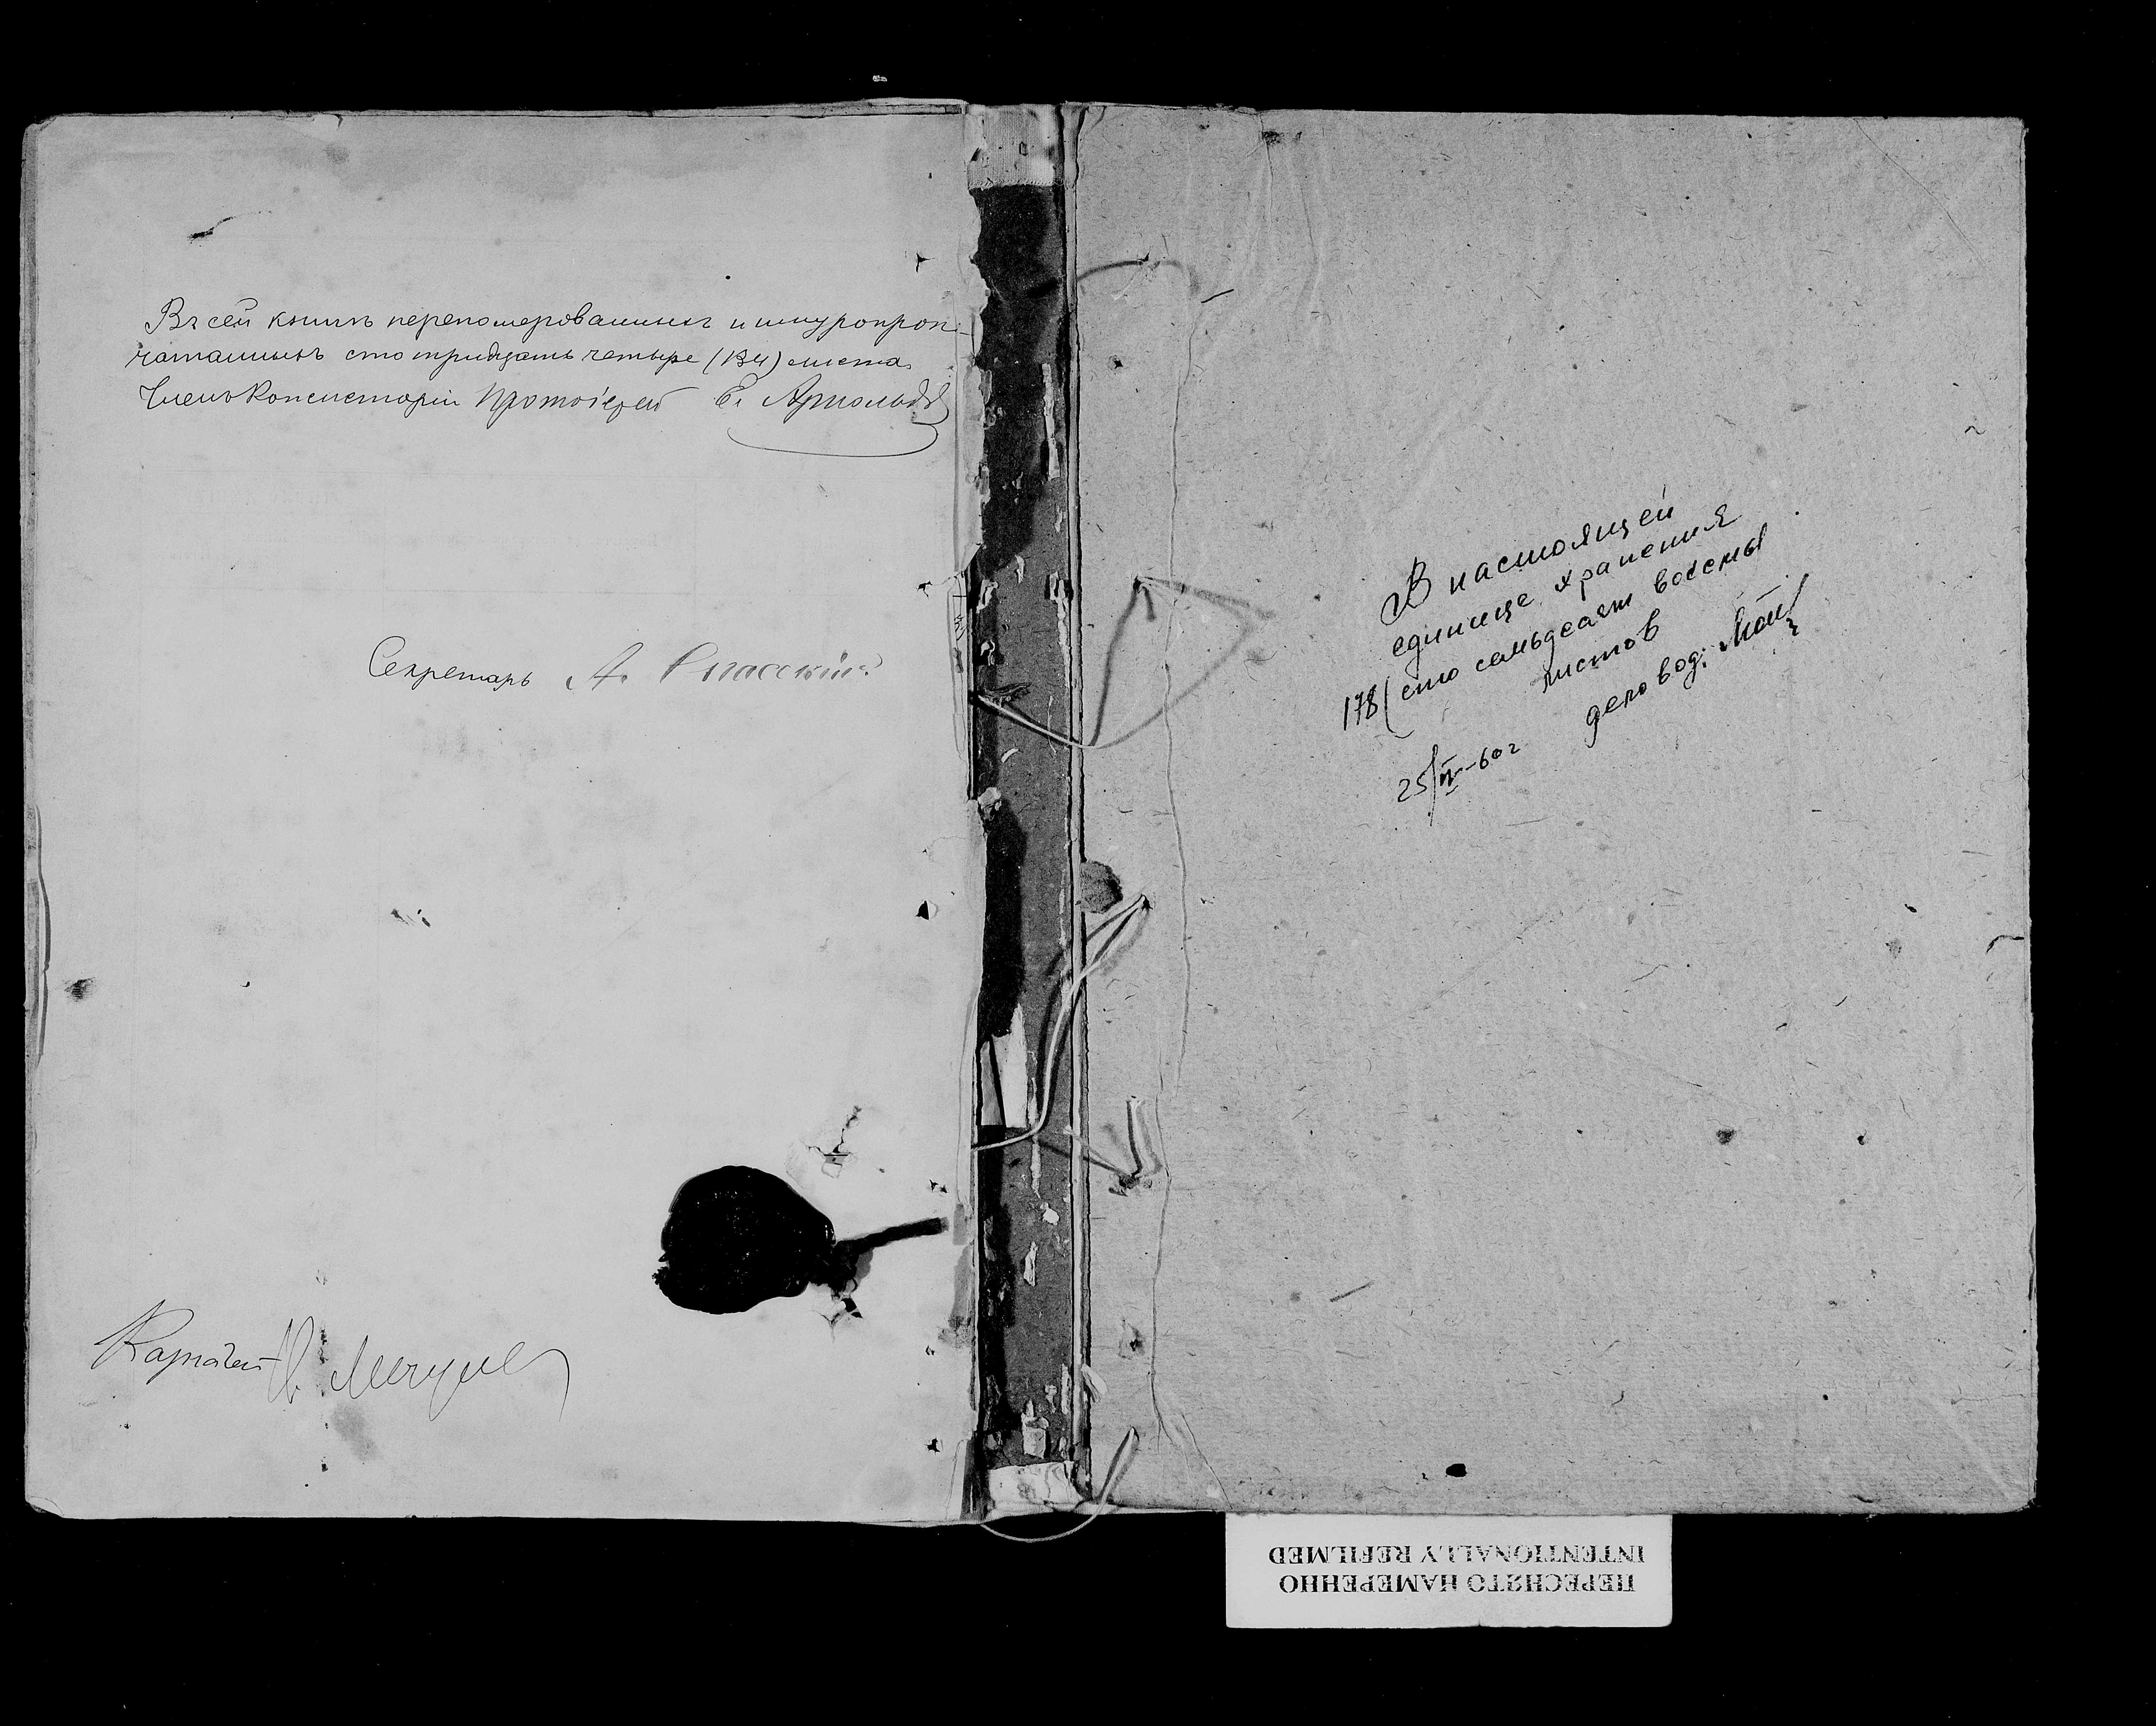 Въ сей книгѣ перенумерованныхъ и шнуропропе-
чатанныхъ сто тридцать четыре (134) листа
Членъ Консисторіи Протоіерей Е. Арнольдъ
Секретарь А. Спасскій
В настоящей
единице хранения
178 (сто семьдесят восемь
листов
деловод:
25/II-60г
ПЕРЕСНЯТО НАМЕРЕННО
INTENTIONALLY REFILMED